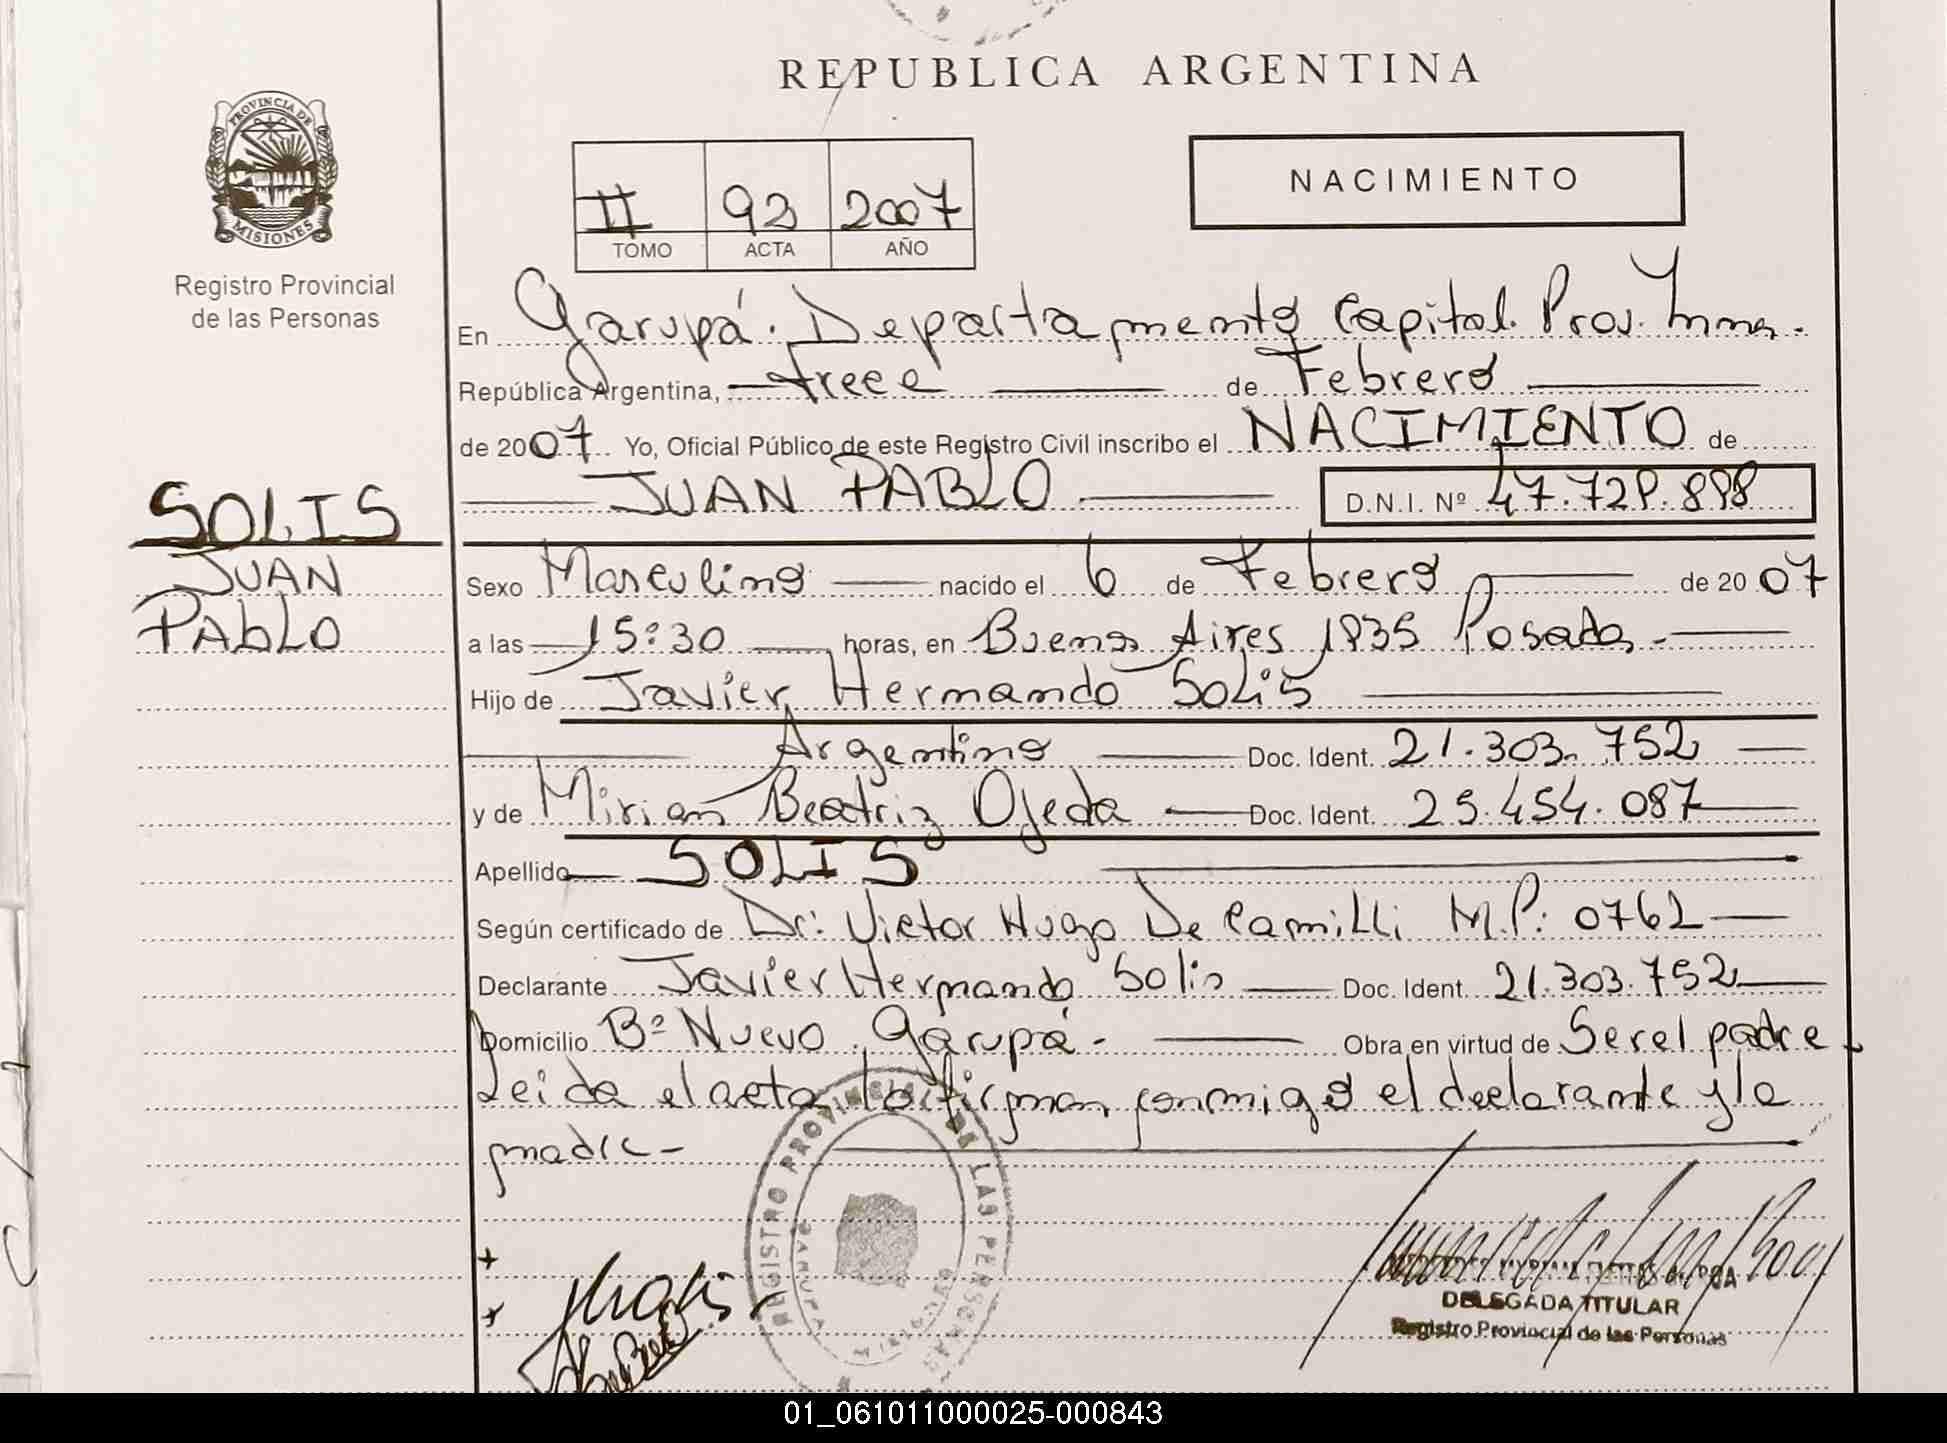 REPUBLICA ARGENTINA
PROVINCIA DE MISIONES
Registro Provincial
de las Personas
II 93 2007
TOMO ACTA AÑO
NACIMIENTO
En Garupá. Departamento Capital. Prov. Mnes.
República Argentina, trece de Febrero
de 2007 Yo, Oficial Público de este Registro Civil inscribo el NACIMIENTO de
JUAN PABLO D.N.I. Nº 47.728.898
SOLIS
JUAN
PABLO
Sexo Masculino nacido el 6 de Febrero de 2007
a las 15:30 horas, en Buenos Aires 1835 Posadas.
Hijo de Javier Hernando Solis
Argentino Doc. Ident. 21.303.752
y de Mirian Beatriz Ojeda Doc. Ident. 25.454.087
Apellido SOLIS
Según certificado de Dr: Victor Hugo De Camilli M.P: 0762
Declarante Javier Hernando Solis Doc. Ident. 21.303.752
Domicilio Bº Nuevo Garupá. Obra en virtud de Ser el padre
Leida el acta la firman conmigo el declarante y la
madre-
REGISTRO PROVINCIAL DE LAS PERSONAS
DELEGADA TITULAR
Registro Provincial de las Personas
01_061011000025-000843